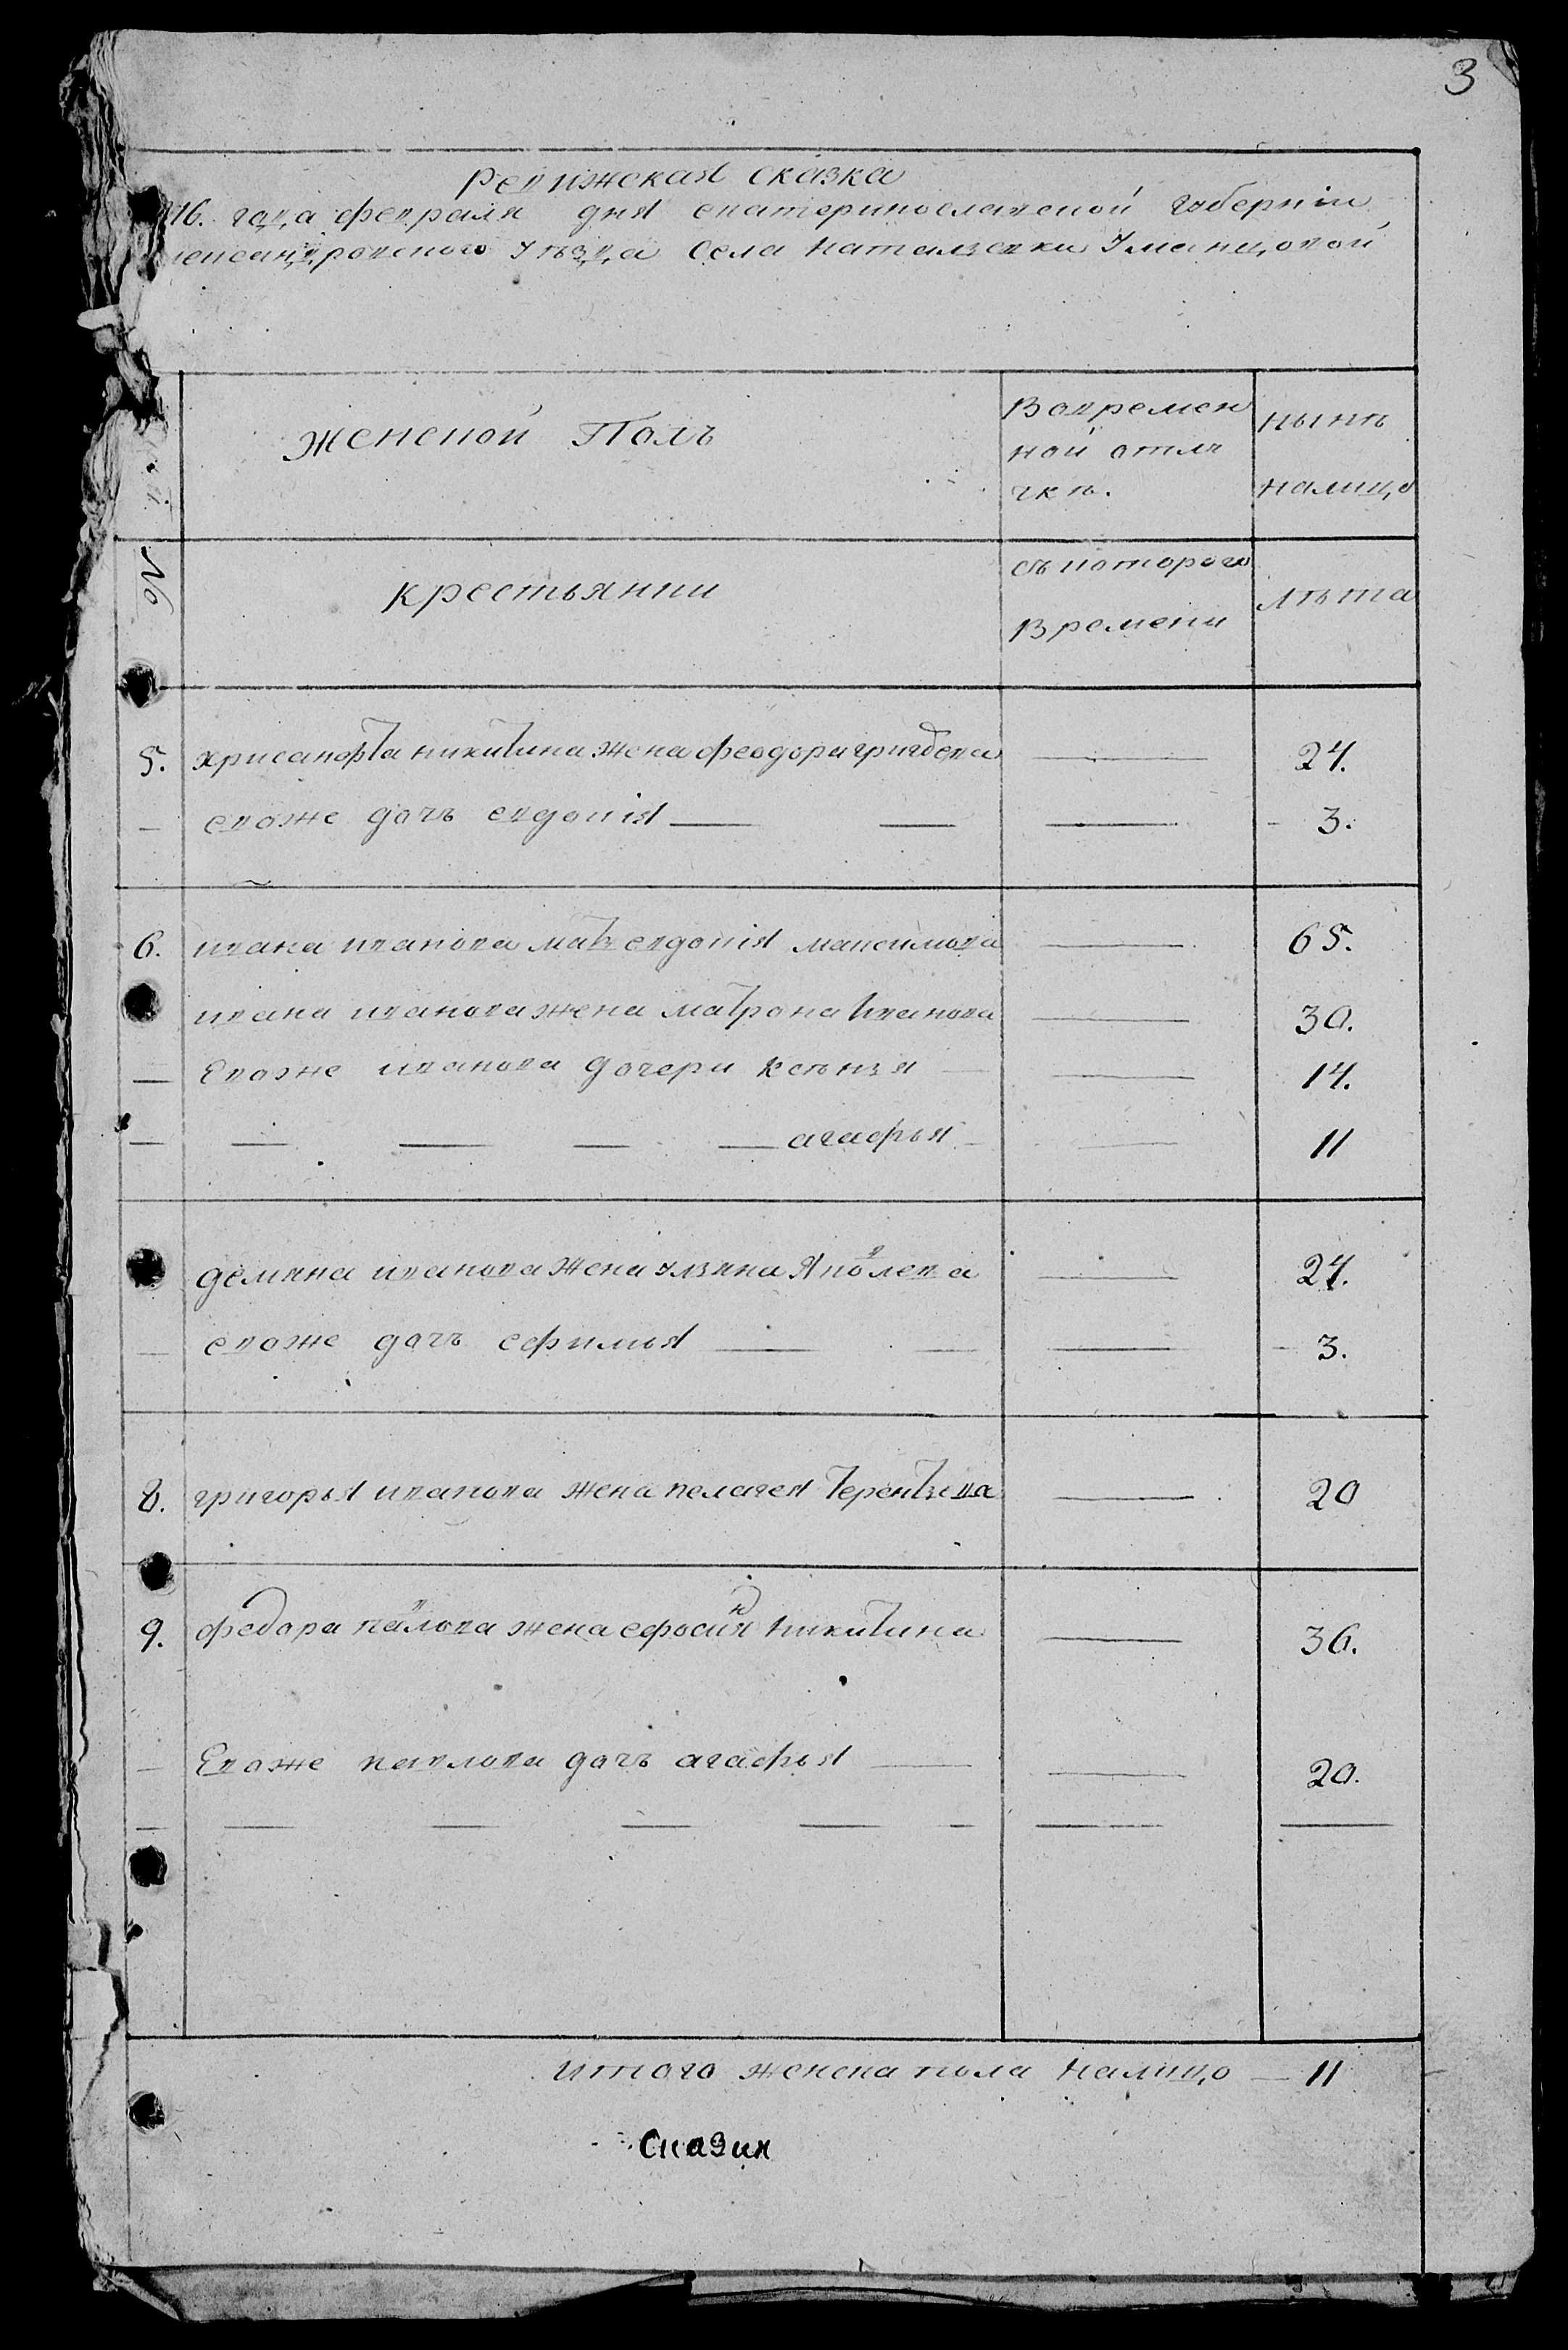 3
Ревижская сказка
16. года февраля дня екатеринославской губернiи
уѣзда села натальевки Уманцовой
женской Полъ
Вовремен
ной отлу
чкѣ.
нынѣ
налицо
№
крестьянки
съ которого
Времени
лѣта
5. хрисанфта никитина жена феодора григорева 24.
— евоже дочь евдокiя — — — 3.
6. ивана иванова мать евдокiя максимова — 65.
ивана иванова жена матрона Иванова — 30.
— Евоже иванова дочери Ксѣнья — 14.
— — — — — агафья — 11
демяна иванова жена ульяна Яковлева — 24.
— евоже дочь ефимья — — — 3.
8. григорья иванова жена пелагея терентьева — 20
9. федора павлова жена ефосиня никитина — 36.
— Евоже павлова дочь агафья — — 20.
Итого женска пола налицо — 11